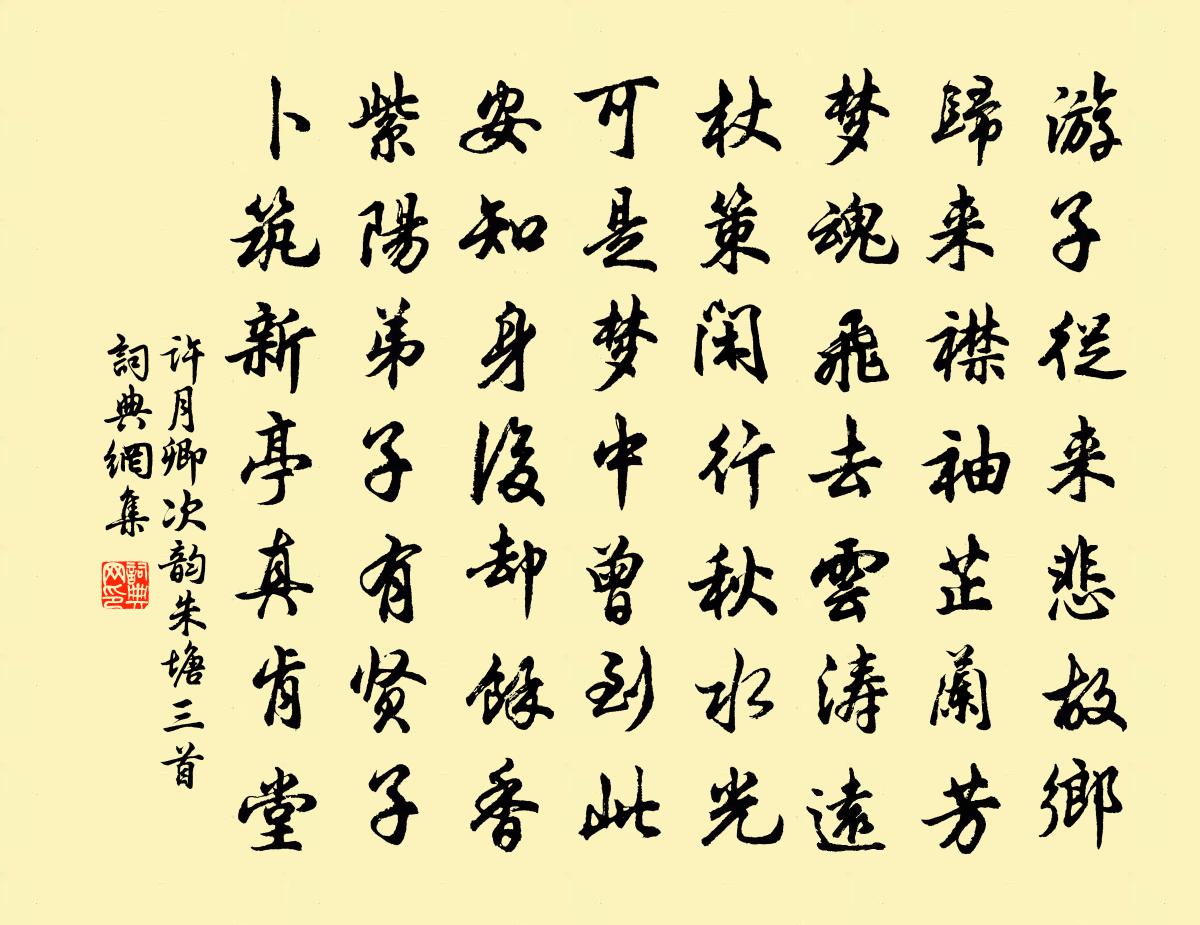 游子從来悲故鄉
歸来襟袖芷蘭芳
梦魂飛去雲涛遠
杖策闲行秋水光
可是梦中曾到此
安知身後却餘香
紫陽弟子有贤子
卜筑新亭真肯堂
许月卿次韵朱塘三首
詞典網集
詞典网印